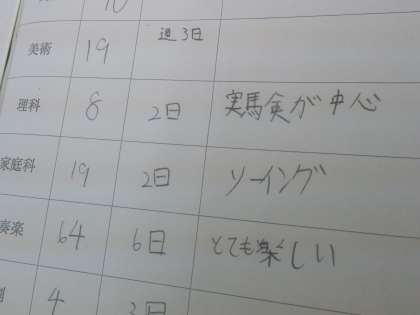 美術 19 週3日
理科 8 2日 実馬実が中心
家庭科 19 2日 ソーイング
奏楽 64 6日 とても楽しい
4 3日